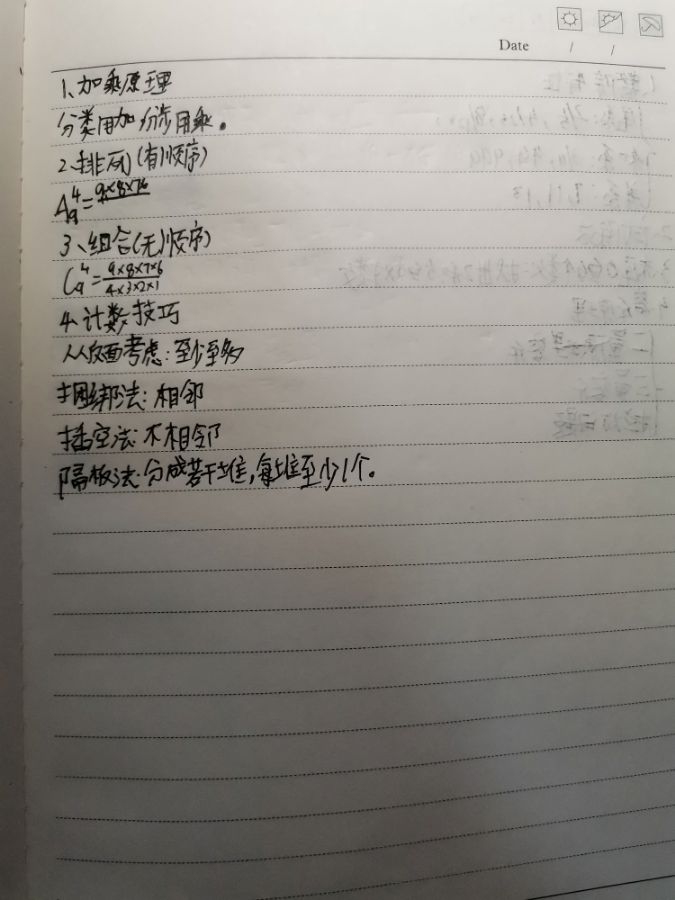 Date / /
1、加乘原理
分类用加 分步用乘。
2、排列(有顺序)
A₉⁴=9×8×7×6
3、组合(无顺序)
C₉⁴=9×8×7×6/4×3×2×1
4、计数技巧
从反面考虑:至少至多
捆绑法:相邻
插空法:不相邻
隔板法:分成若干堆,每堆至少1个。